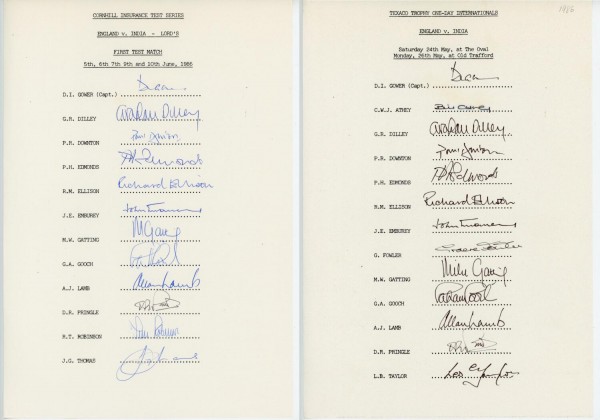 CORNHILL INSURANCE TEST SERIES
ENGLAND v. INDIA - LORD'S
FIRST TEST MATCH
5th, 6th 7th 9th and 10th June, 1986
D.I. GOWER (Capt.)
G.R. DILLEY Graham Dilley
P.R. DOWNTON
P.H. EDMONDS PH Edmonds
R.M. ELLISON Richard Ellison
J.E. EMBUREY
M.W. GATTING
G.A. GOOCH
A.J. LAMB Allan Lamb
D.R. PRINGLE
R.T. ROBINSON
J.G. THOMAS
TEXACO TROPHY ONE-DAY INTERNATIONALS
1986
ENGLAND v. INDIA
Saturday 24th May, at The Oval
Monday, 26th May, at Old Trafford
D.I. GOWER (Capt.)
C.W.J. ATHEY
G.R. DILLEY Graham Dilley
P.R. DOWNTON
P.H. EDMONDS PH Edmonds
R.M. ELLISON Richard Ellison
J.E. EMBUREY
G. FOWLER
M.W. GATTING Mike Gatting
G.A. GOOCH
A.J. LAMB Allan Lamb
D.R. PRINGLE
L.B. TAYLOR Les Taylor